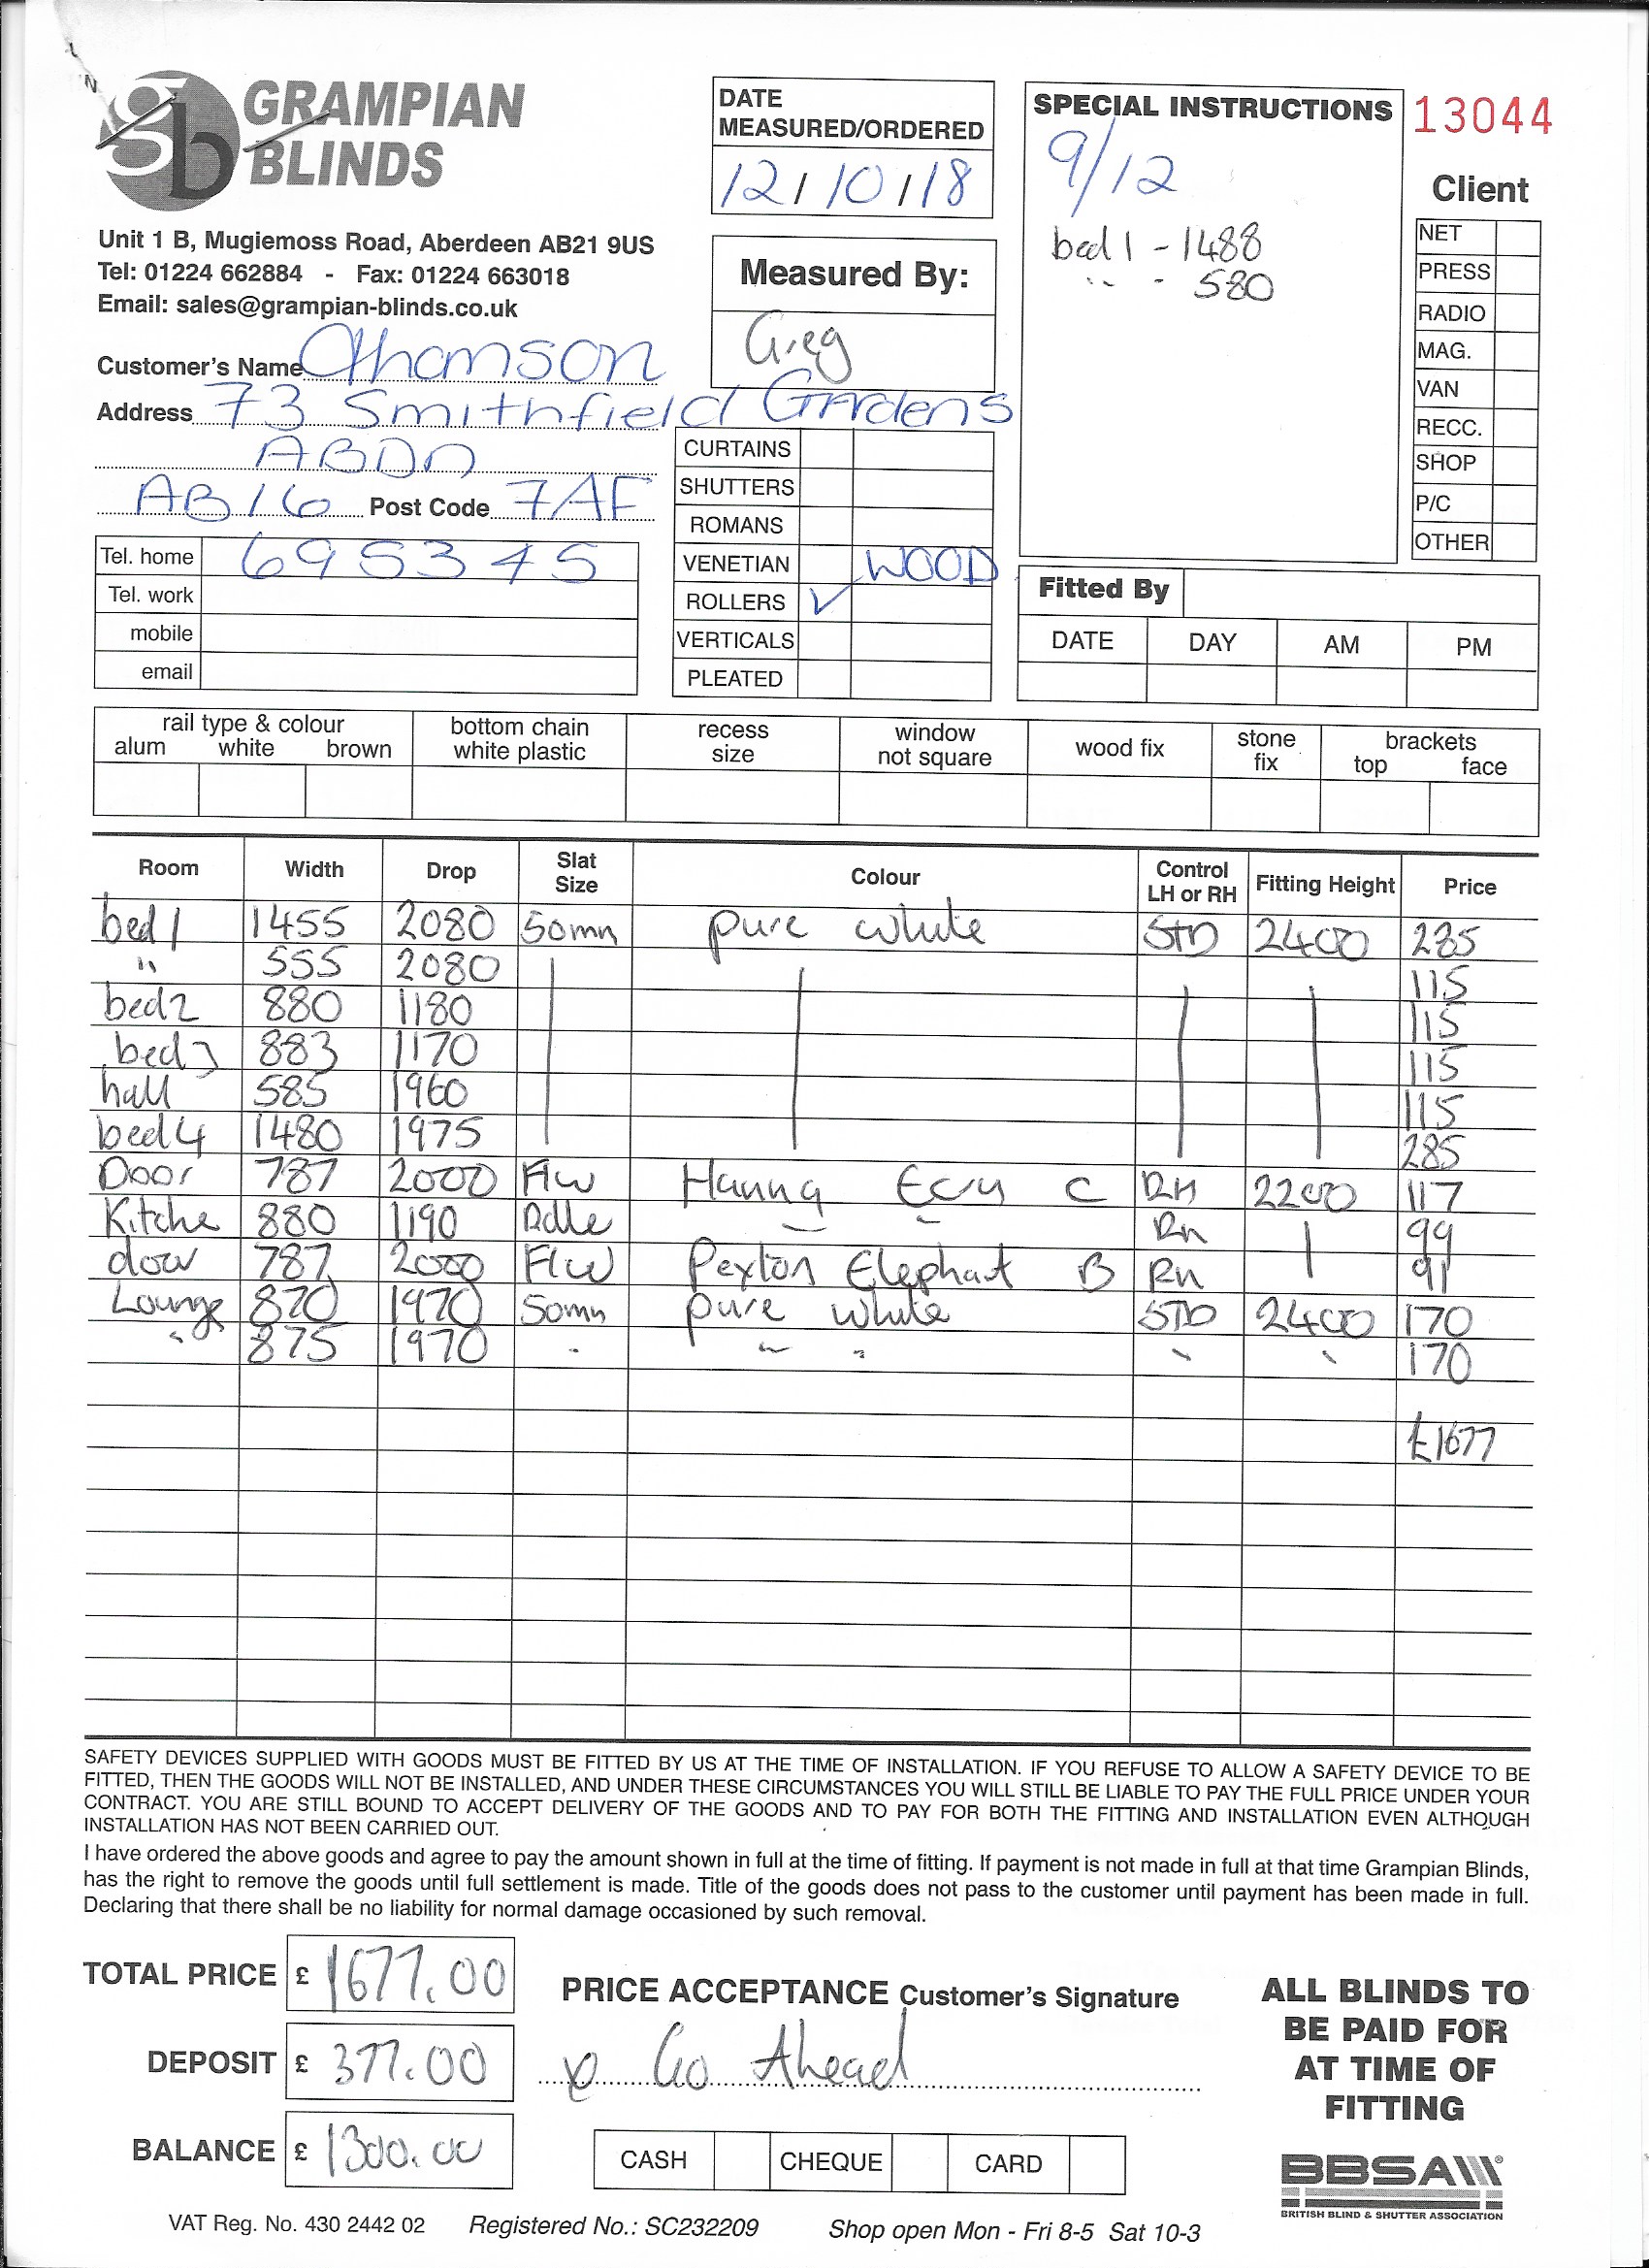 gb GRAMPIAN BLINDS
Unit 1 B, Mugiemoss Road, Aberdeen AB21 9US
Tel: 01224 662884 - Fax: 01224 663018
Email: sales@grampian-blinds.co.uk
DATE MEASURED/ORDERED
12/10/18
Measured By:
Greg
SPECIAL INSTRUCTIONS
9/12
bed 1 - 1488
" - 580
13044
Client
NET
PRESS
RADIO
MAG.
VAN
RECC.
SHOP
P/C
OTHER
Customer's Name Thomson
Address 73 Smithfield Gardens
ABDN
AB16 Post Code 7AF
Tel. home 695345
Tel. work
mobile
email
CURTAINS
SHUTTERS
ROMANS
VENETIAN WOOD
ROLLERS ✓
VERTICALS
PLEATED
Fitted By
DATE DAY AM PM
rail type & colour
alum white brown
bottom chain white plastic
recess size
window not square
wood fix
stone fix
brackets
top face
Room Width Drop Slat Size Colour Control LH or RH Fitting Height Price
bed 1 1455 2080 50mm pure white STD 2400 285
" 555 2080 115
bed 2 880 1180 115
bed 3 883 1170 115
hall 585 1960 115
bed 4 1480 1975 285
Door 787 2000 Flw Hanna C RH 2200 117
Kitche 880 1190 RH 99
door 787 2000 Flw Pexton Elephant B RH 91
Lounge 870 1970 50mm pure white STD 2400 170
" 875 1970 " " " 170
£1677
SAFETY DEVICES SUPPLIED WITH GOODS MUST BE FITTED BY US AT THE TIME OF INSTALLATION. IF YOU REFUSE TO ALLOW A SAFETY DEVICE TO BE
FITTED, THEN THE GOODS WILL NOT BE INSTALLED, AND UNDER THESE CIRCUMSTANCES YOU WILL STILL BE LIABLE TO PAY THE FULL PRICE UNDER YOUR
CONTRACT. YOU ARE STILL BOUND TO ACCEPT DELIVERY OF THE GOODS AND TO PAY FOR BOTH THE FITTING AND INSTALLATION EVEN ALTHOUGH
INSTALLATION HAS NOT BEEN CARRIED OUT.
I have ordered the above goods and agree to pay the amount shown in full at the time of fitting. If payment is not made in full at that time Grampian Blinds,
has the right to remove the goods until full settlement is made. Title of the goods does not pass to the customer until payment has been made in full.
Declaring that there shall be no liability for normal damage occasioned by such removal.
TOTAL PRICE £ 1677.00
DEPOSIT £ 377.00
BALANCE £ 1300.00
PRICE ACCEPTANCE Customer's Signature
x Go Ahead
CASH CHEQUE CARD
ALL BLINDS TO
BE PAID FOR
AT TIME OF
FITTING
BBSA
BRITISH BLIND & SHUTTER ASSOCIATION
VAT Reg. No. 430 2442 02 Registered No.: SC232209 Shop open Mon - Fri 8-5 Sat 10-3